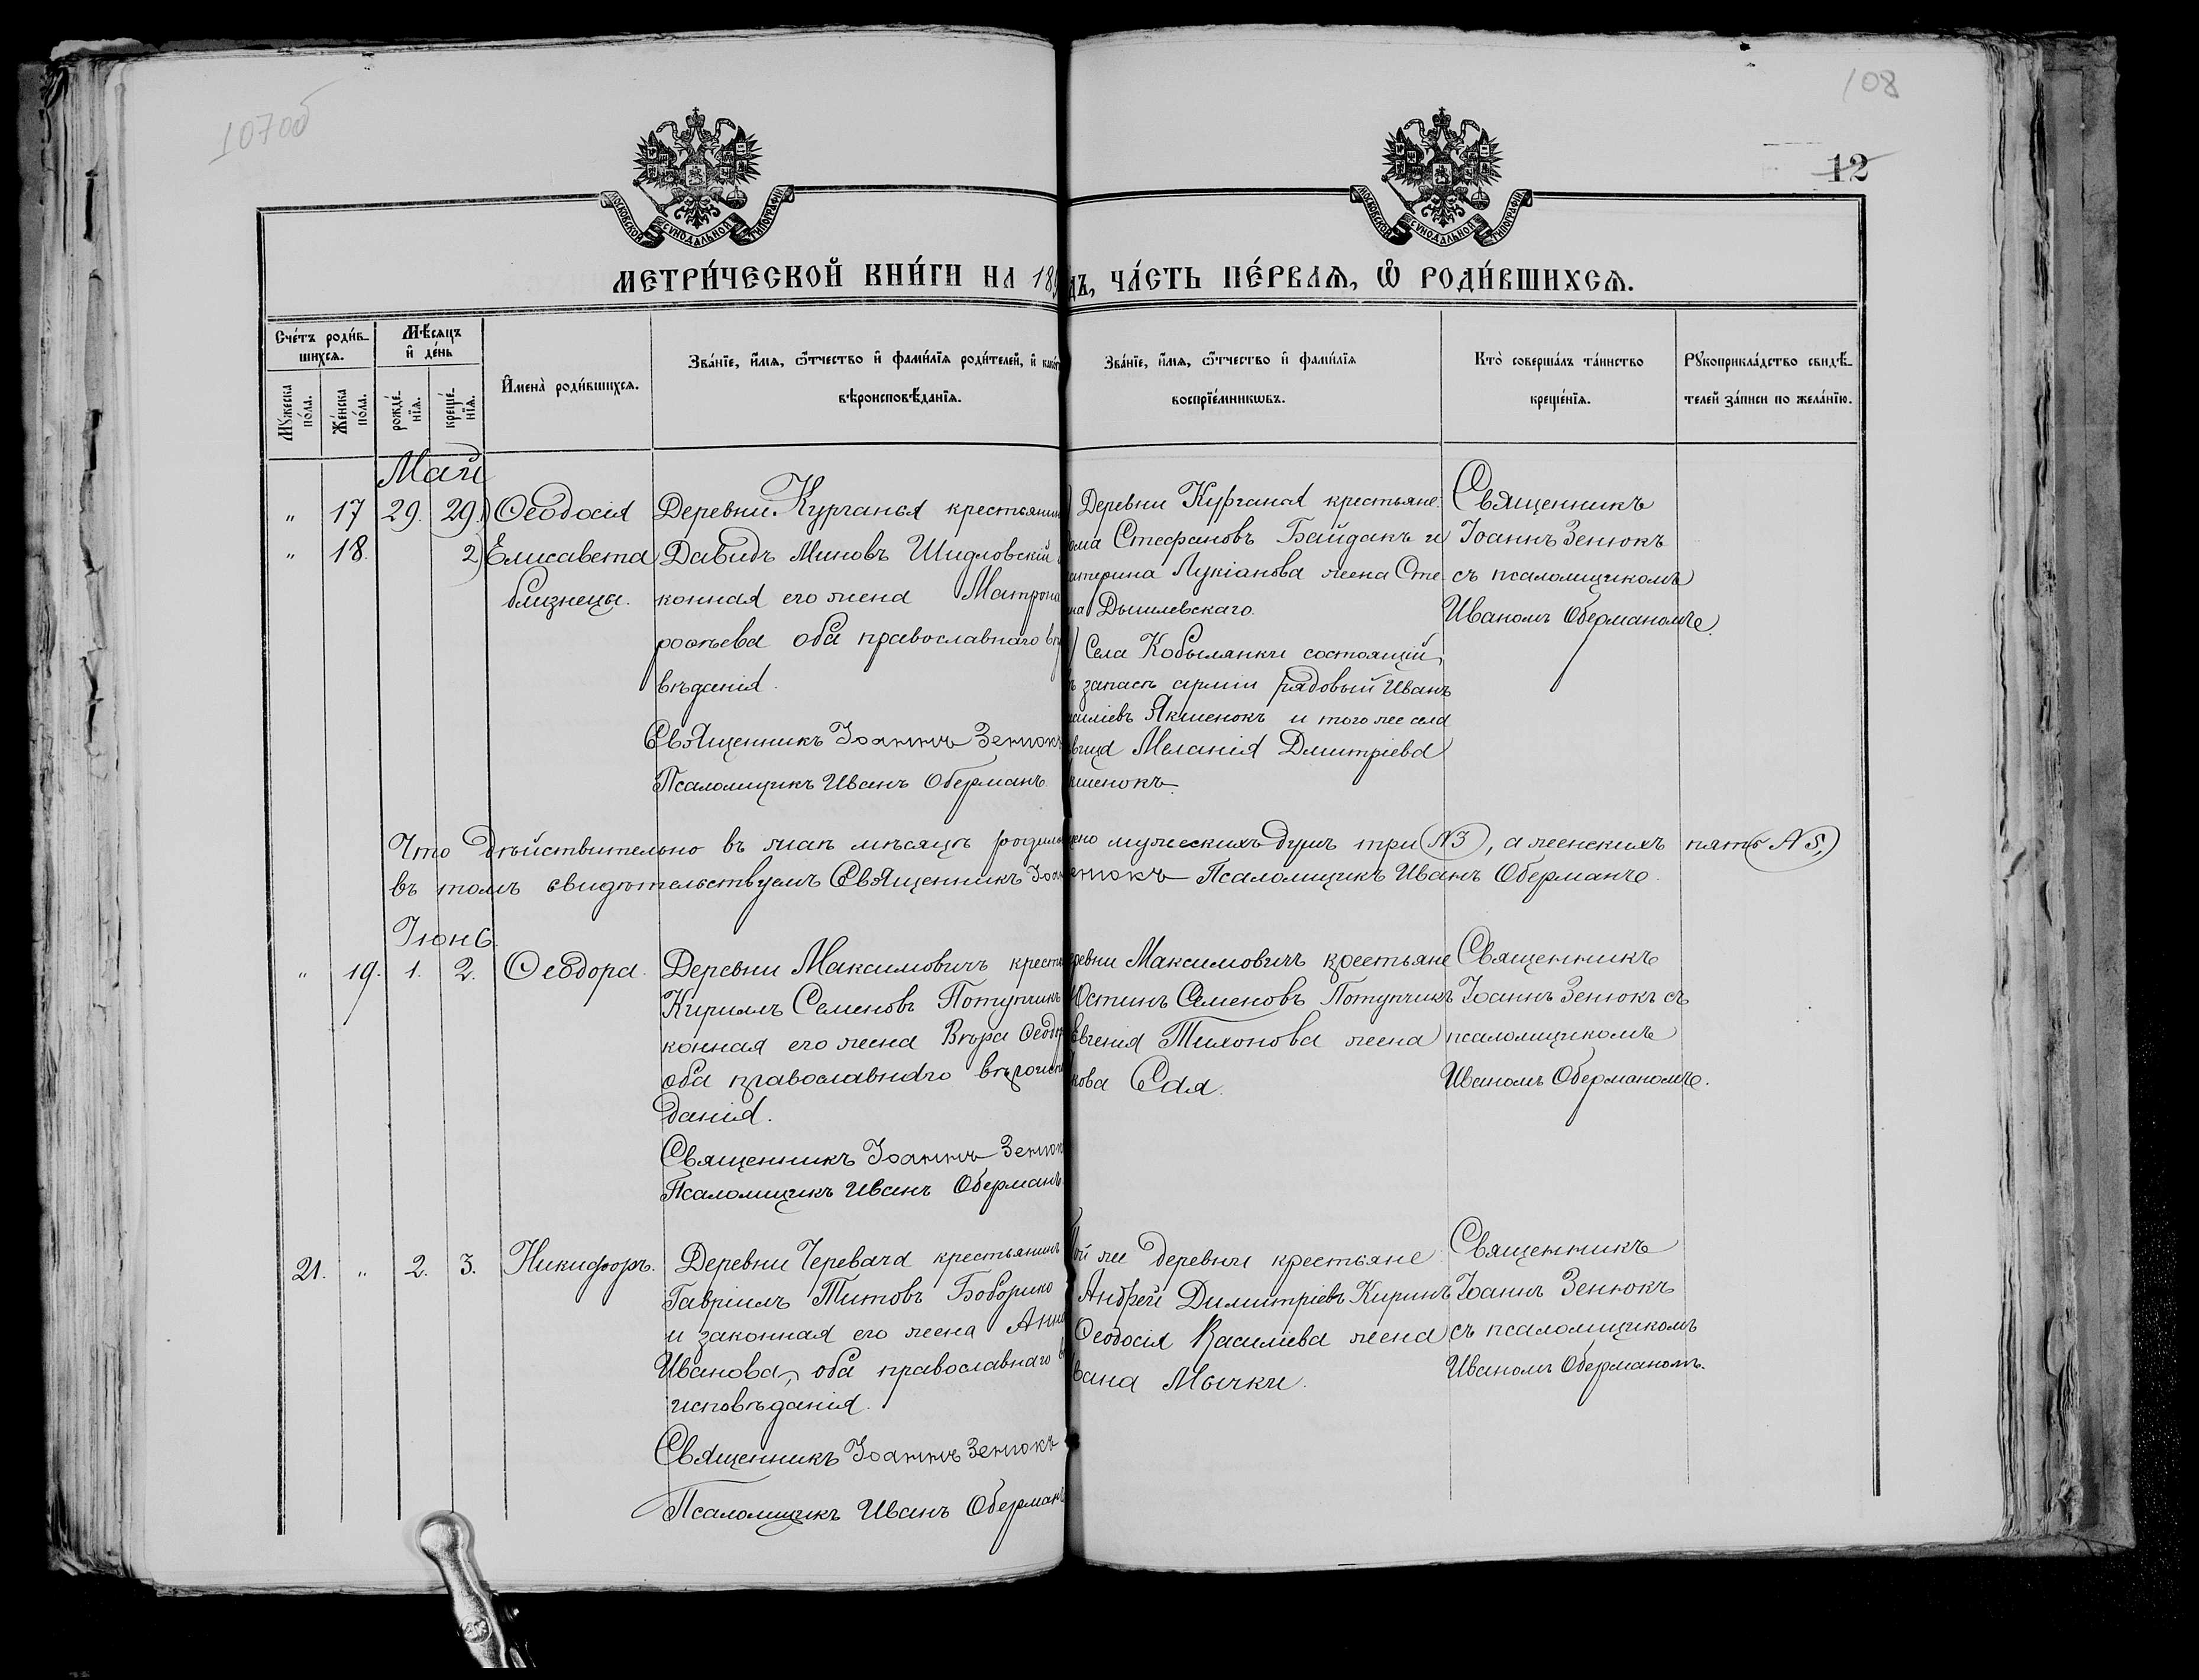 107об
108
12
МОСКОВСКОЙ СУНОДАЛЬНОЙ ТИПОГРАФІИ
МОСКОВСКОЙ СУНОДАЛЬНОЙ ТИПОГРАФІИ
МЕТРИ́ЧЕСКОЙ КНИ́ГИ НА 189 дъ, ЧА́СТЬ ПЕ́РВАѦ, Ѡ РОДИ́ВШИХСѦ.
Сче́тъ роди́в-
шихсѧ.
Мꙋ́жеска по́ла.
Же́нска по́ла.
Мѣ́сѧцъ и҆ де́нь
рожде́-нїѧ.
креще́-нїѧ.
И҆мена̀ роди́вшихсѧ.
Зва́нїе, и҆́мѧ, ѻ҆́тчество и҆ фами́лїѧ роди́телей, и҆ како́г
вѣроисповѣ́данїѧ.
Зва́нїе, и҆́мѧ, ѻ҆́тчество и҆ фами́лїѧ
воспрїе́мникѡвъ.
Кто̀ соверша́лъ та́инство
креще́нїѧ.
Рꙋкоприкла́дство свидѣ́-
телей за́писи по жела́нїю.
Май
" 17 29. 29. Ѳеодосія
" 18. 2) Елисавета
близнецы.
Деревни Курганья крестьянин
Давидъ Миновъ Шидловскій
конная его жена Матрона
роѳѣева оба православнаго в
вѣданія.
Священникъ Іоаннъ Зенюкъ
Псаломщикъ Иванъ Оберманъ
Деревни Курганья крестьяне:
ома Стефановъ Байдакъ и
атерина Лукіанова жена Сте-
на Дышлевскаго.
Села Кобылянки состоящій
ъ запасѣ арміи рядовый Иванъ
силіевъ Якшенокъ и того же села
вица Меланія Дмитріева
кшенокъ.
Священникъ
Іоаннъ Зенюкъ
съ псаломщикомъ
Иваномъ Оберманомъ.
Что дѣйствительно въ маѣ мѣсяцѣ родило щено мужескихъ душъ три (№3), а женскихъ пять (№5,)
въ томъ свидѣтельствуемъ Священникъ Іоан енюкъ Псаломщикъ Иванъ Оберманъ.
Іюнь
" 19. 1. 2. Ѳеодора.
Деревни Максимовичъ кресть
Кириллъ Семеновъ Потупчикъ
конная его жена Вѣра Ѳеодо
оба православнаго вѣроиспо
данія.
Священникъ Іоаннъ Зенюк
Псаломщикъ Иванъ Оберманъ
ревни Максимовичъ крестьяне
Юстинъ Семеновъ Потупчикъ
Евгенія Тихонова жена
кова Сая.
Священникъ
Іоаннъ Зенюкъ съ
псаломщикомъ
Иваномъ Оберманомъ.
21. " 2. 3. Никифоръ.
Деревни Черевача крестьянинъ
Гавріилъ Титовъ Боборико
и законная его жена Анна
Иванова, оба православнаго в
исповѣданія.
Священникъ Іоаннъ Зенюкъ
Псаломщикъ Иванъ Оберманъ
ой же деревни крестьяне
Андрей Димитріевъ Киринъ
Ѳеодосія Василіева жена
вана Мычки.
Священникъ
Іоаннъ Зенюкъ
съ псаломщикомъ
Иваномъ Оберманомъ.